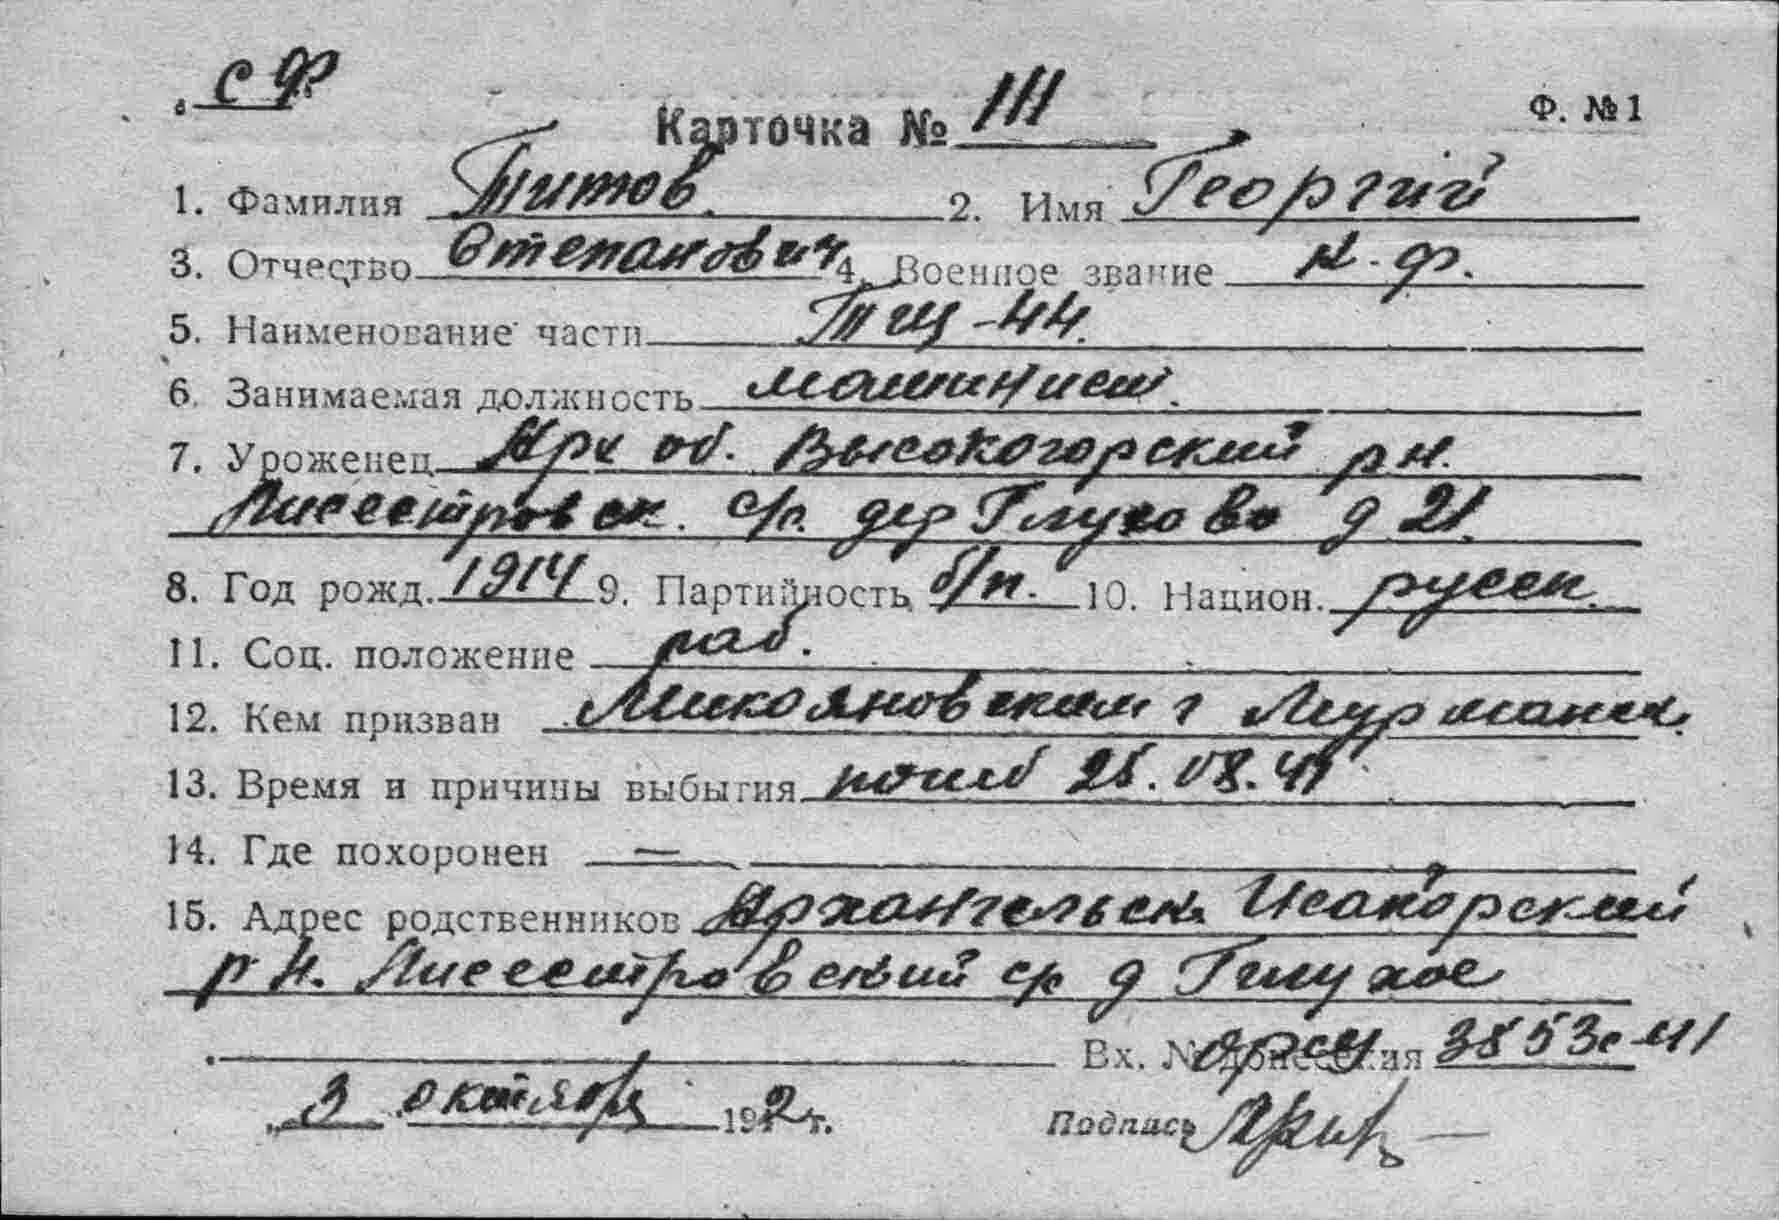 СФ
Карточка № 111 Ф. №1
1. Фамилия Титов 2. Имя Георгий
3. Отчество Степанович 4. Военное звание к.ф.
5. Наименование части Тщ-44.
6. Занимаемая должность машинист.
7. Уроженец Арх об. Высокогорский рн.
Лисестровск. с/с. дер Глухово д 21.
8. Год рожд. 1914 9. Партийность б/п. 10. Национ. русск.
11. Соц. положение раб.
12. Кем призван Микояновским г Мурманск.
13. Время и причины выбытия погиб 25.08.41
14. Где похоронен —
15. Адрес родственников Архангельск. Исакогорский
рн. Лисестровский ср д Глухое
Вх. № донесения 3853с-41
3 октября 1942 г. Подпись